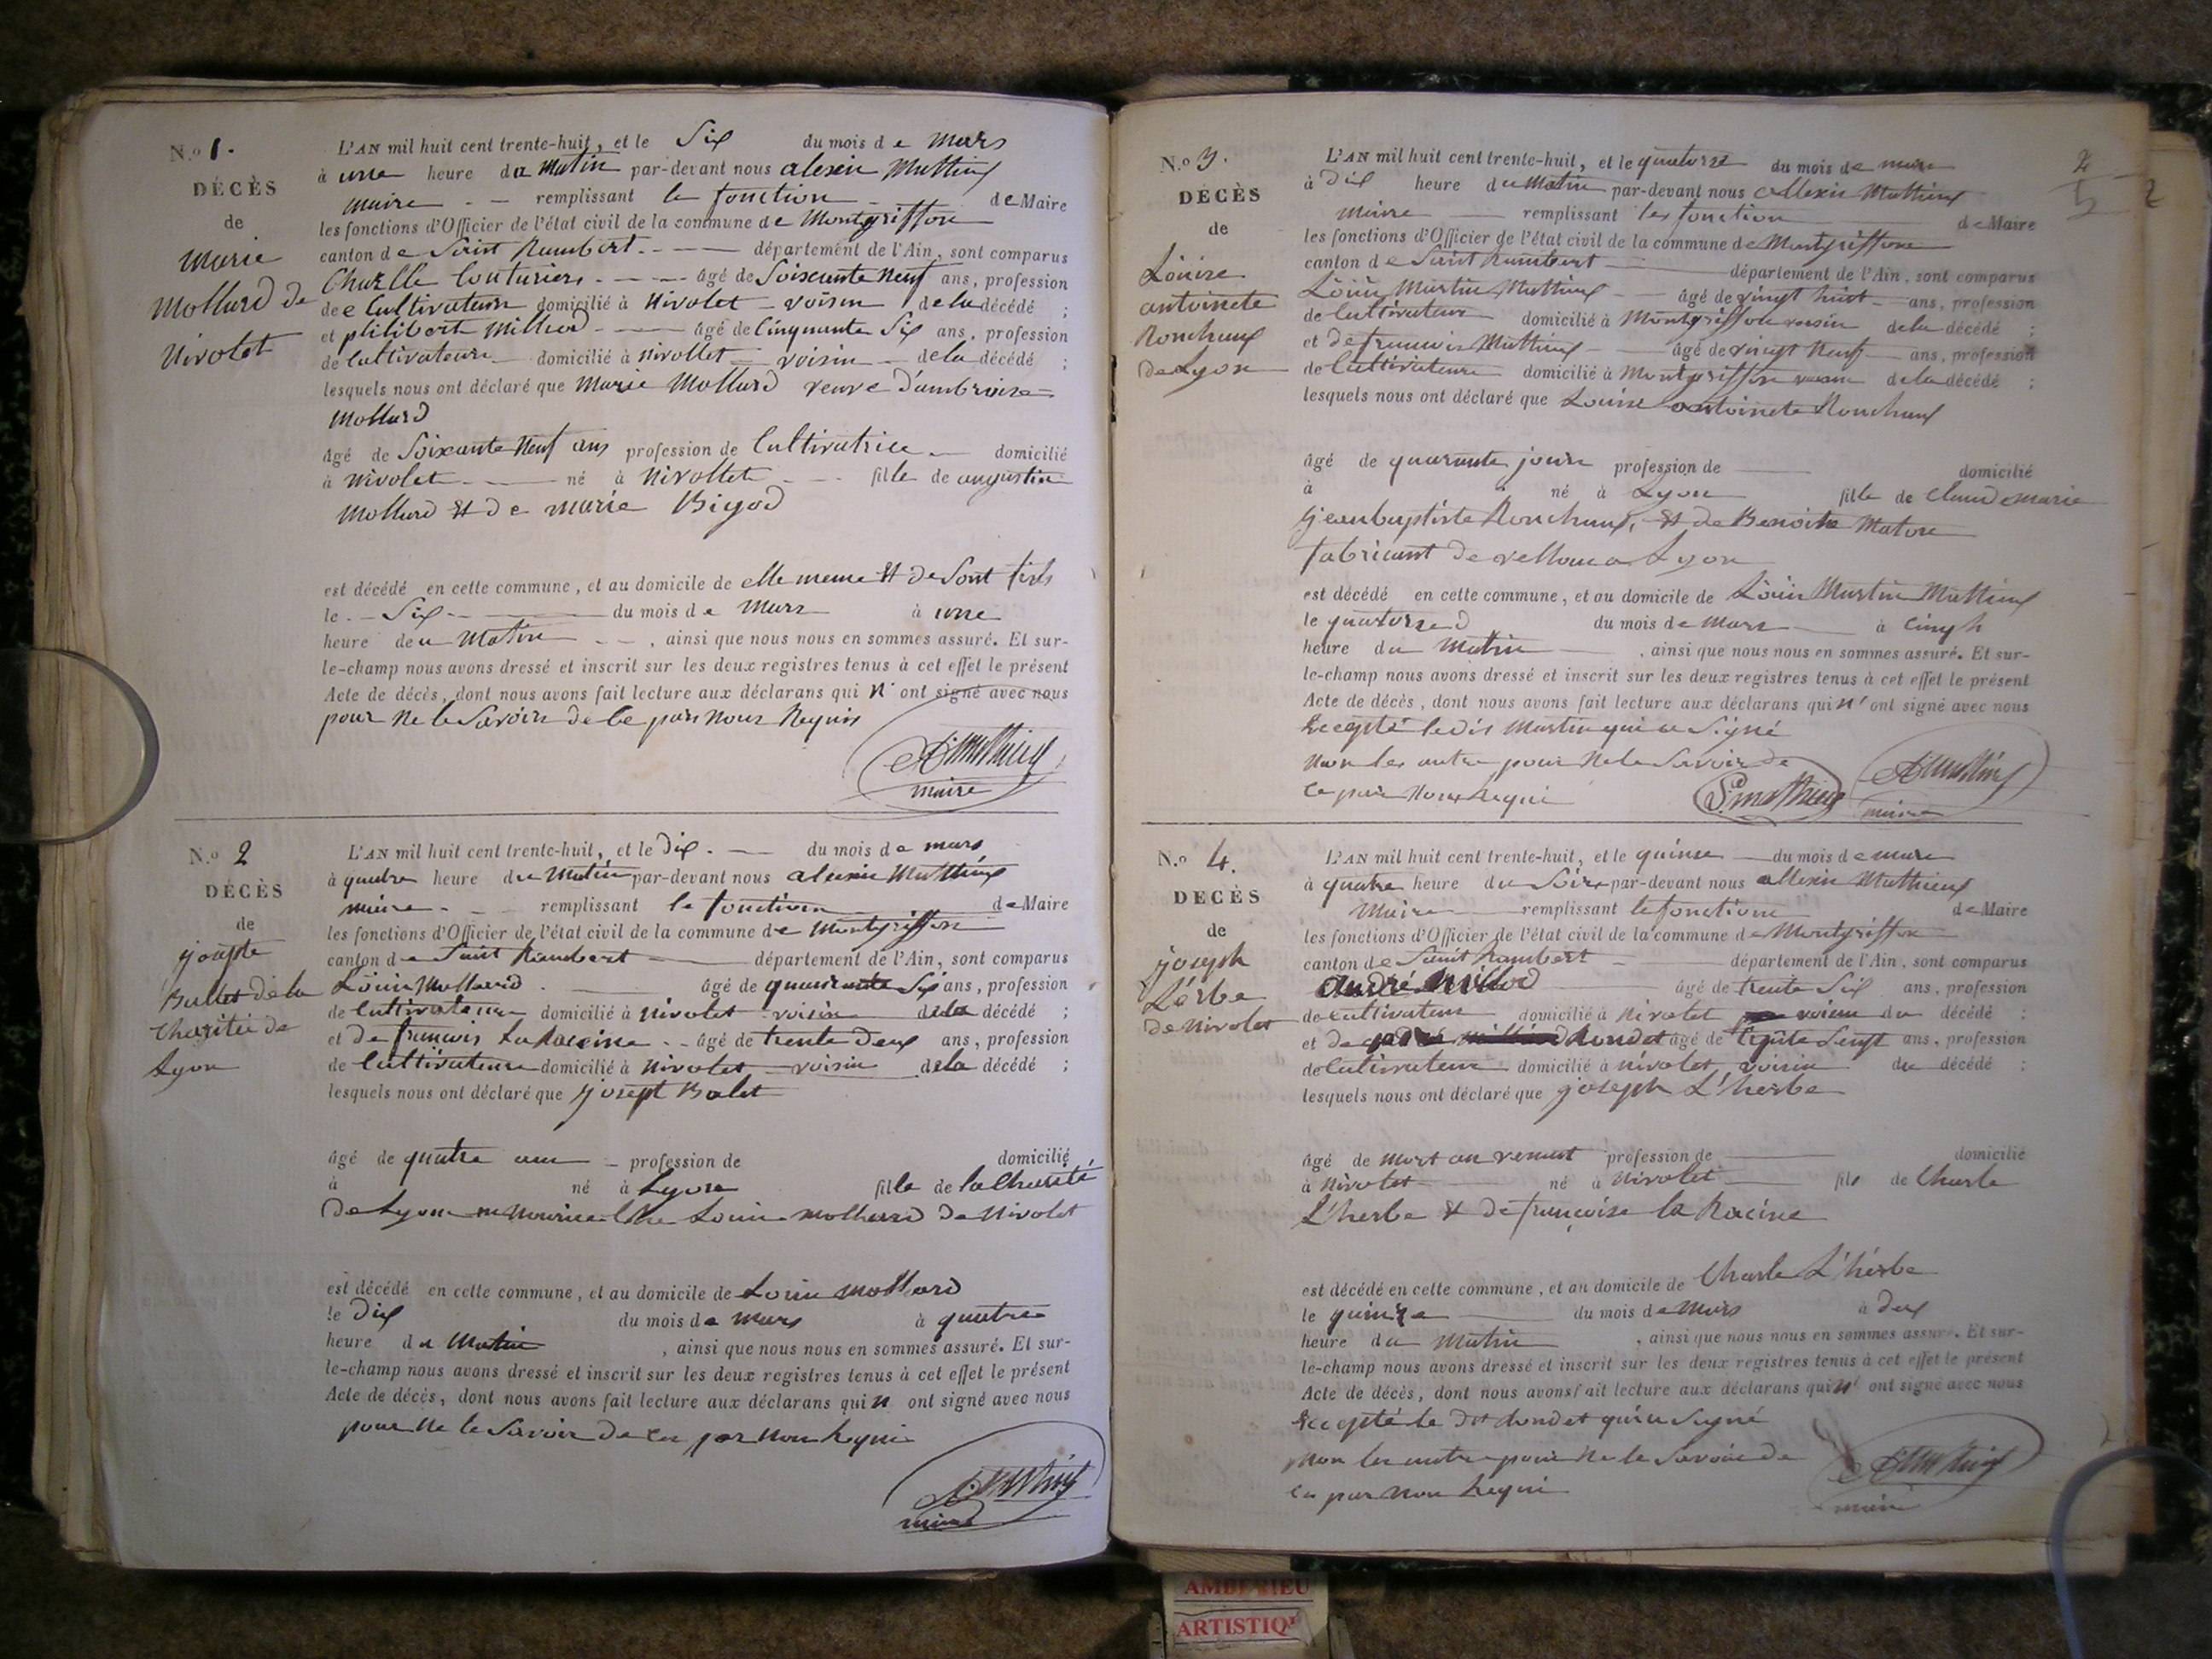 N.º 1.
DÉCÈS
de
Marie
Mollard de
Nivolet
L'AN mil huit cent trente-huit, et le Six du mois de Mars
à une heure du Matin par-devant nous alexin Mathieu
maire remplissant le fonction de Maire
les fonctions d'Officier de l'état civil de la commune de Montgriffon
canton de Saint Rambert département de l'Ain, sont comparus
Charlle Couturier âgé de Soixante Neuf ans, profession
de Cultivateur domicilié à Nivolet voisin de la décédé ;
et philibert Milliod âgé de Cinquante Six ans, profession
de Cultivateur domicilié à nivollet voisin de la décédé ;
lesquels nous ont déclaré que Marie Mollard veuve d'ambroise
Mollard
âgé de Soixante Neuf ans profession de Cultivatrice domicilié
à Nivolet né à Nivollet fille de augustin
Mollard & de marie Bigod
est décédé en cette commune, et au domicile de elle meme & de Sont fils
le Six du mois de Mars à une
heure du Matin , ainsi que nous nous en sommes assuré. Et sur-
le-champ nous avons dressé et inscrit sur les deux registres tenus à cet effet le présent
Acte de décès, dont nous avons fait lecture aux déclarans qui n' ont signé avec nous
pour ne le Savoir de Ce par nous Requis
A. Mathieu
maire
N.º 2
DÉCÈS
de
Ballet de la
Charitée de
Lyon
L'AN mil huit cent trente-huit, et le dix du mois de mars
à quatre heure du Matin par-devant nous alexin Mathieu
maire remplissant le fonction de Maire
les fonctions d'Officier de l'état civil de la commune de Montgriffon
canton de Saint Rambert département de l'Ain, sont comparus
Louis Mollard âgé de quarante Six ans, profession
de Cultivateur domicilié à Nivolet voisin de la décédé ;
et de francois La Racine âgé de trente deux ans, profession
de Cultivateur domicilié à Nivolet voisin de la décédé ;
lesquels nous ont déclaré que josept Balet
âgé de quatre ans profession de domicilié
à né à Lyon fille de la Charité
de Lyon en Nourice Louis Mollard de Nivolet
est décédé en cette commune, et au domicile de Louis Mollard
le Dix du mois de mars à quatre
heure du Matin , ainsi que nous nous en sommes assuré. Et sur-
le-champ nous avons dressé et inscrit sur les deux registres tenus à cet effet le présent
Acte de décès, dont nous avons fait lecture aux déclarans qui n ont signé avec nous
pour ne le Savoir de Ce par nous Requi
A. Mathieu
maire
2
5
2
N.º 3.
DÉCÈS
de
Louise
antoinete
Ronchaux
de Lyon
L'AN mil huit cent trente-huit, et le quatorze du mois de mars
à dix heure du Matin par-devant nous allexin Mathieu
maire remplissant les fonction de Maire
les fonctions d'Officier de l'état civil de la commune de Montgriffon
canton de Saint Rambert département de l'Ain, sont comparus
Louis Martin Mathieu âgé de vingt huit ans, profession
de Cultivateur domicilié à Montgriffon voisin de la décédé ;
et de francois Mathieu âgé de vingt Neuf ans, profession
de Cultivateur domicilié à Montgriffon voisin de la décédé ;
lesquels nous ont déclaré que Louise antoinete Ronchaux
âgé de quarante jours profession de domicilié
à né à Lyon fille de Claude marie
jeanbaptiste Ronchaux, & de Benoite Maton
fabricant de vellour a Lyon
est décédé en cette commune, et au domicile de Louis Martin Mathieu
le quatorze du mois de Mars à cinq h
heure du Matin , ainsi que nous nous en sommes assuré. Et sur-
le-champ nous avons dressé et inscrit sur les deux registres tenus à cet effet le présent
Acte de décès, dont nous avons fait lecture aux déclarans qui n' ont signé avec nous
Excepté ledis Martin qui a Signé
Non les autre pour Ne le Savoir de
Ce par Nous Requi
Mathieu
A. Mathieu
maire
N.º 4.
DÉCÈS
de
joseph
L'erbe
de Nivolet
L'AN mil huit cent trente-huit, et le quinse du mois de mars
à quatre heure du Soire par-devant nous allexin Mathieu
Maire remplissant le fonction de Maire
les fonctions d'Officier de l'état civil de la commune de Montgriffon
canton de Saint Rambert département de l'Ain, sont comparus
André Milliod âgé de trente Six ans, profession
de Cultivateur domicilié à Nivolet voisin du décédé ;
et de âgé de trente Sept ans, profession
de Cultivateur domicilié à nivolet voisin du décédé ;
lesquels nous ont déclaré que joseph L'herbe
âgé de mort au venant profession de domicilié
à Nivolet né à Nivolet fils de Charle
L'herbe & de françoise la Racine
est décédé en cette commune, et au domicile de Charle L'hérbe
le quinze du mois de Mars à deux
heure du Matin , ainsi que nous nous en sommes assuré. Et sur-
le-champ nous avons dressé et inscrit sur les deux registres tenus à cet effet le présent
Acte de décès, dont nous avons fait lecture aux déclarans qui n' ont signé avec nous
Excepté le dit qui a Signé
Non les autre pour Ne le Savoir de
Ce par nou Requi
A. Mathieu
maire
AMBERIEU
ARTISTIQU